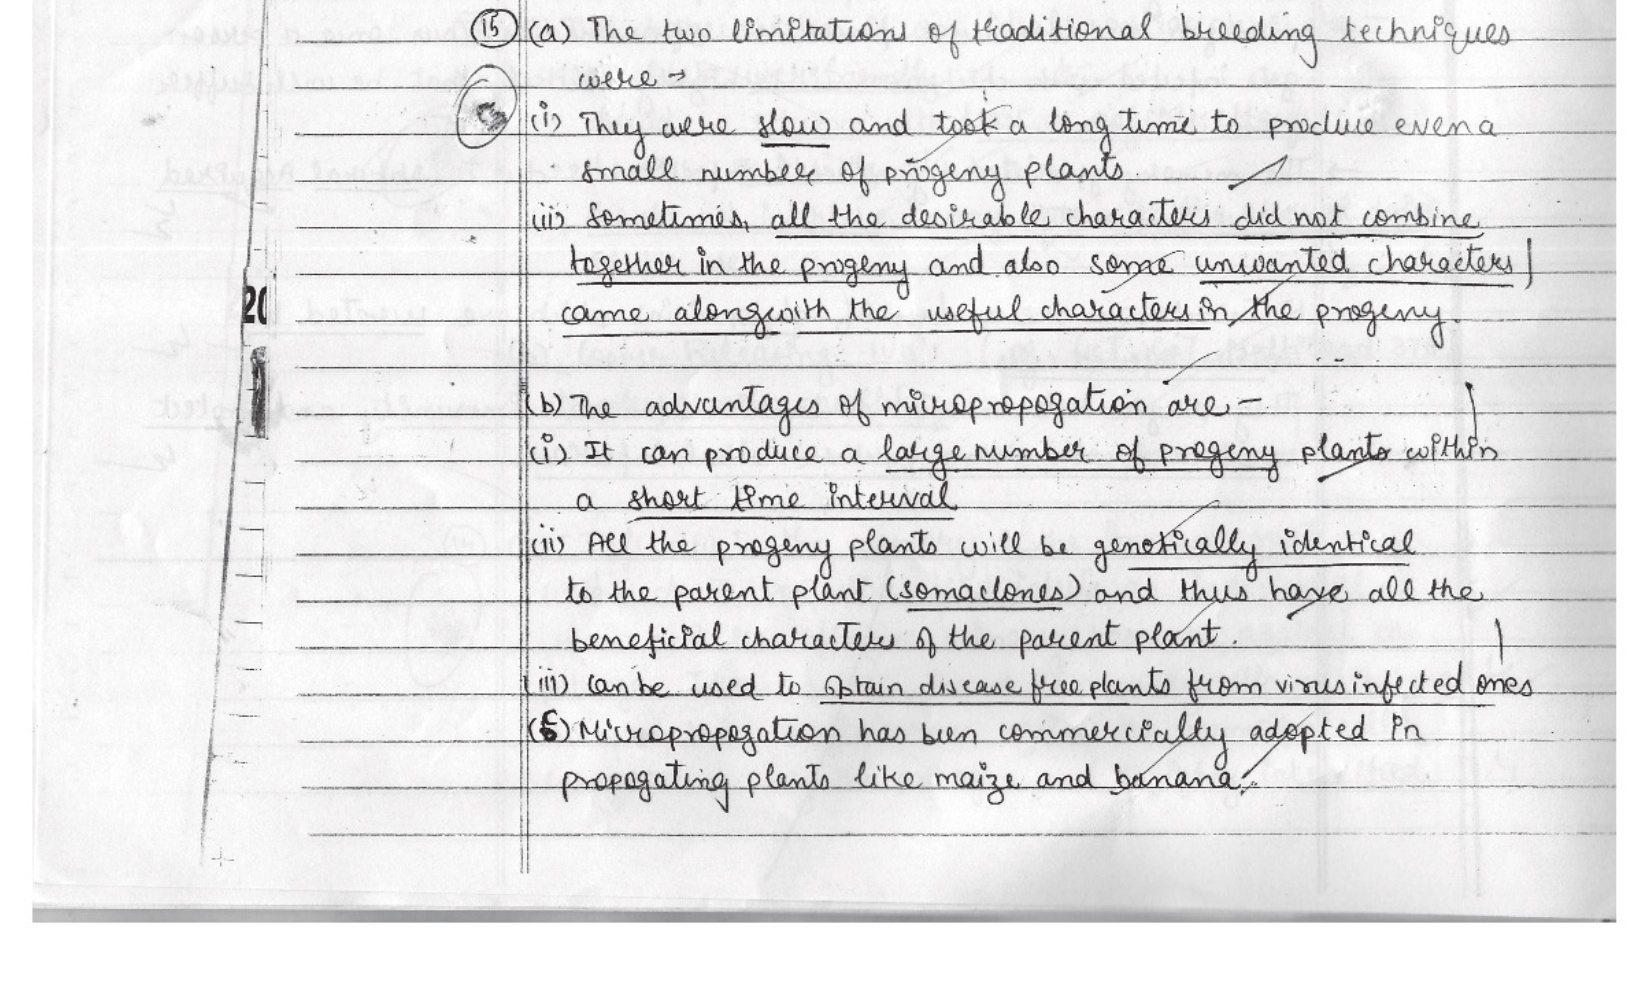 (15) (a) The two limitations of traditional breeding techniques
were →
(i) They were slow and took a long time to produce even a
small number of progeny plants.
(ii) Sometimes, all the desirable characters did not combine
together in the progeny and also some unwanted characters
came alongwith the useful characters in the progeny.
20
(b) The advantages of micropropogation are –
(i) It can produce a large number of progeny plants within
a short time interval
(ii) All the progeny plants will be genetically identical
to the parent plant (somaclones) and thus have all the
beneficial characters of the parent plant.
(iii) Can be used to obtain disease free plants from virus infected ones
(c) Micropropogation has been commercially adopted in
propogating plants like maize and banana.